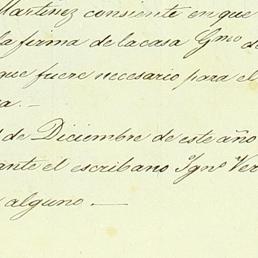 Martinez consiente en que
la firma de la casa Gmo de
que fuere necesario para el
a. —
de Diciembre de este año
ante el escribano Ign° Ver
alguno —